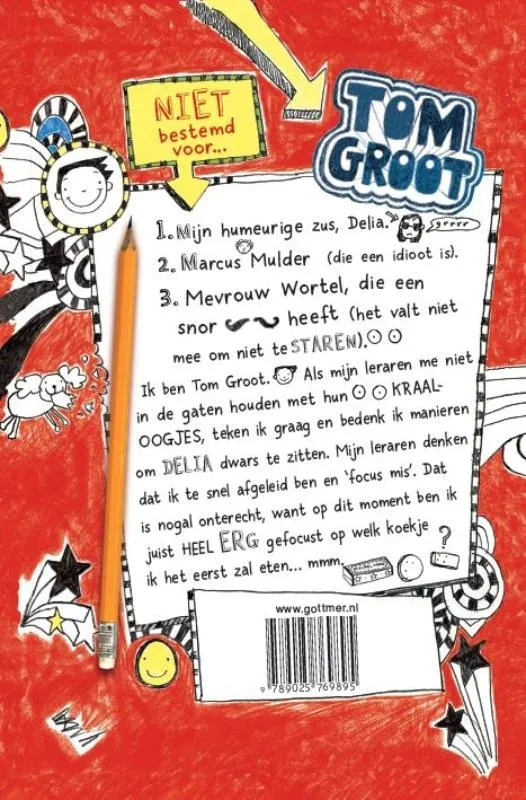 NIET
bestemd
voor...
TOM
GROOT
1. Mijn humeurige zus, Delia.
grrrr
2. Marcus Mulder (die een idioot is).
3. Mevrouw Wortel, die een
snor heeft (het valt niet
mee om niet te STAREN).
Ik ben Tom Groot. Als mijn leraren me niet
in de gaten houden met hun KRAAL-
OOGJES, teken ik graag en bedenk ik manieren
om DELIA dwars te zitten. Mijn leraren denken
dat ik te snel afgeleid ben en 'focus mis'. Dat
is nogal onterecht, want op dit moment ben ik
juist HEEL ERG gefocust op welk koekje
ik het eerst zal eten... mmm. ?
www.gottmer.nl
9 789025 769895